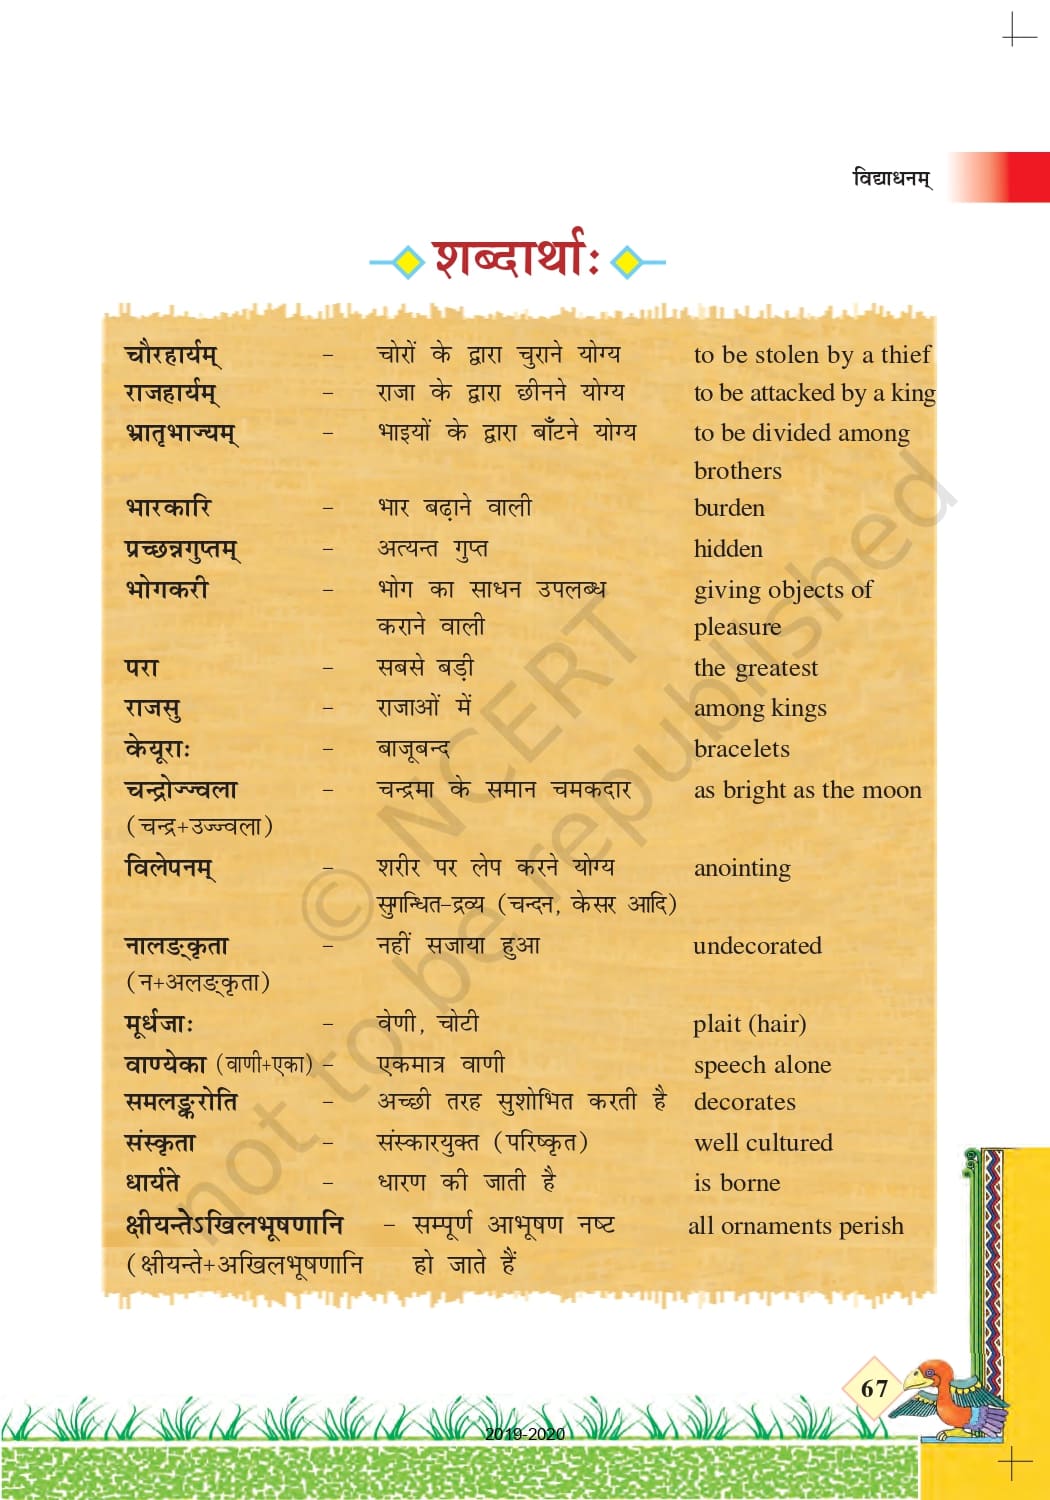 विद्याधनम्
शब्दार्थाः
चौरहार्यम् – चोरों के द्वारा चुराने योग्य to be stolen by a thief
राजहार्यम् – राजा के द्वारा छीनने योग्य to be attacked by a king
भ्रातृभाज्यम् – भाइयों के द्वारा बाँटने योग्य to be divided among
brothers
भारकारि – भार बढ़ाने वाली burden
प्रच्छन्नगुप्तम् – अत्यन्त गुप्त hidden
भोगकरी – भोग का साधन उपलब्ध giving objects of
कराने वाली pleasure
परा – सबसे बड़ी the greatest
राजसु – राजाओं में among kings
केयूराः – बाजूबन्द bracelets
चन्द्रोज्ज्वला – चन्द्रमा के समान चमकदार as bright as the moon
(चन्द्र+उज्ज्वला)
विलेपनम् – शरीर पर लेप करने योग्य anointing
सुगन्धित-द्रव्य (चन्दन, केसर आदि)
नालङ्कृता – नहीं सजाया हुआ undecorated
(न+अलङ्कृता)
मूर्धजाः – वेणी, चोटी plait (hair)
वाण्येका (वाणी+एका) – एकमात्र वाणी speech alone
समलङ्करोति – अच्छी तरह सुशोभित करती है decorates
संस्कृता – संस्कारयुक्त (परिष्कृत) well cultured
धार्यते – धारण की जाती है is borne
क्षीयन्तेऽखिलभूषणानि – सम्पूर्ण आभूषण नष्ट all ornaments perish
(क्षीयन्ते+अखिलभूषणानि हो जाते हैं
© NCERT
not to be republished
67
2019-2020